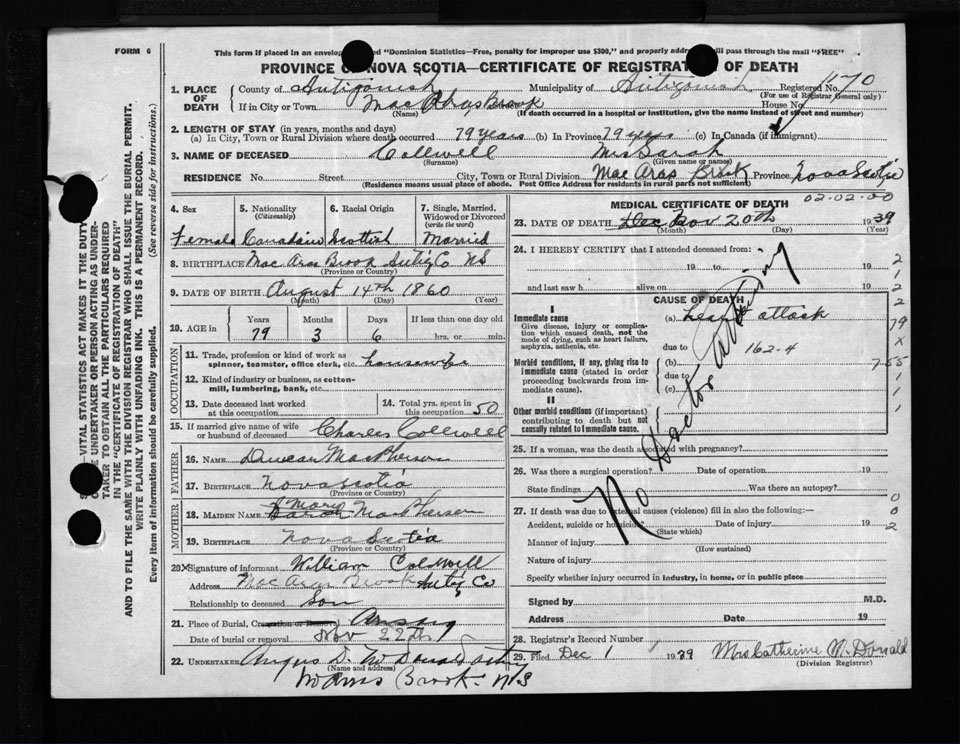 FORM 6
This form if placed in an envelope "Dominion Statistics—Free, penalty for improper use $300," and properly addressed will pass through the mail "FREE"
PROVINCE OF NOVA SCOTIA—CERTIFICATE OF REGISTRATION OF DEATH
1. PLACE OF DEATH County of Antigonish Municipality of Antigonish Registered No. 1170
(For use of Registrar General only)
If in City or Town Mac Aras Brook House No.
(Name) (If death occurred in a hospital or institution, give the name instead of street and number)
2. LENGTH OF STAY (in years, months and days)
(a) In City, Town or Rural Division where death occurred 79 years (b) In Province 79 yrs (c) In Canada (if immigrant)
3. NAME OF DECEASED Collwell Mrs Sarah
(Surname) (Given name or names)
RESIDENCE No. Street City, Town or Rural Division Mac Aras Brook Province Nova Scotia
(Residence means usual place of abode. Post Office Address for residents in rural parts not sufficient)
02-02-00
4. Sex 5. Nationality (Citizenship) 6. Racial Origin 7. Single, Married, Widowed or Divorced (write the word)
Female Canadain Scottish Married
8. BIRTHPLACE Mac Aras Brook Antig Co NS
(Province or Country)
9. DATE OF BIRTH August 14th 1860
(Month) (Day) (Year)
10. AGE in Years Months Days If less than one day old
79 3 6 hrs. or min.
OCCUPATION
11. Trade, profession or kind of work as spinner, teamster, office clerk, etc. housewife
12. Kind of industry or business, as cotton-mill, lumbering, bank, etc.
13. Date deceased last worked at this occupation 14. Total yrs. spent in this occupation 50
15. If married give name of wife or husband of deceased Charles Collwell
FATHER
16. NAME Duncan MacPherson
17. BIRTHPLACE Nova Scotia
(Province or Country)
MOTHER
18. MAIDEN NAME Mary MacPherson
19. BIRTHPLACE Nova Scotia
(Province or Country)
20. Signature of informant William Colwell
Address Mac Aras Brook Antig Co
Relationship to deceased Son
21. Place of Burial, Cremation or Removal
Date of burial or removal Nov 22th
22. UNDERTAKER Angus D. McDonald
(Name and address)
Brook N S
MEDICAL CERTIFICATE OF DEATH
23. DATE OF DEATH Dec Nov 20th 1939
(Month) (Day) (Year)
24. I HEREBY CERTIFY that I attended deceased from:
19 to 19
and last saw h alive on 19
CAUSE OF DEATH
I
Immediate cause
Give disease, injury or complication which caused death, not the mode of dying, such as heart failure, asphyxia, asthenia, etc.
(a) heart attack
due to 162-4
Morbid conditions, if any, giving rise to immediate cause (stated in order proceeding backwards from immediate cause).
(b)
due to
(c)
II
Other morbid conditions (if important) contributing to death but not causally related to immediate cause.
No Doctor attending
25. If a woman, was the death associated with pregnancy?
26. Was there a surgical operation? Date of operation 19
State findings Was there an autopsy?
27. If death was due to external causes (violence) fill in also the following:—
Accident, suicide or homicide Date of injury 19
(State which)
Manner of injury
(How sustained)
Nature of injury
Specify whether injury occurred in industry, in home, or in public place
Signed by M.D.
Address Date 19
28. Registrar's Record Number 1
29. Filed Dec 1 1939 Mrs Catherine McDonald
(Division Registrar)
2
1
2
2
79
X
7-55
1
1
1
0
0
2
VITAL STATISTICS ACT MAKES IT THE DUTY OF THE UNDERTAKER OR PERSON ACTING AS UNDERTAKER TO OBTAIN ALL THE PARTICULARS REQUIRED IN THE "CERTIFICATE OF REGISTRATION OF DEATH"
AND TO FILE THE SAME WITH THE DIVISION REGISTRAR WHO SHALL ISSUE THE BURIAL PERMIT.
WRITE PLAINLY WITH UNFADING INK. THIS IS A PERMANENT RECORD.
Every item of information should be carefully supplied. (See reverse side for instructions.)